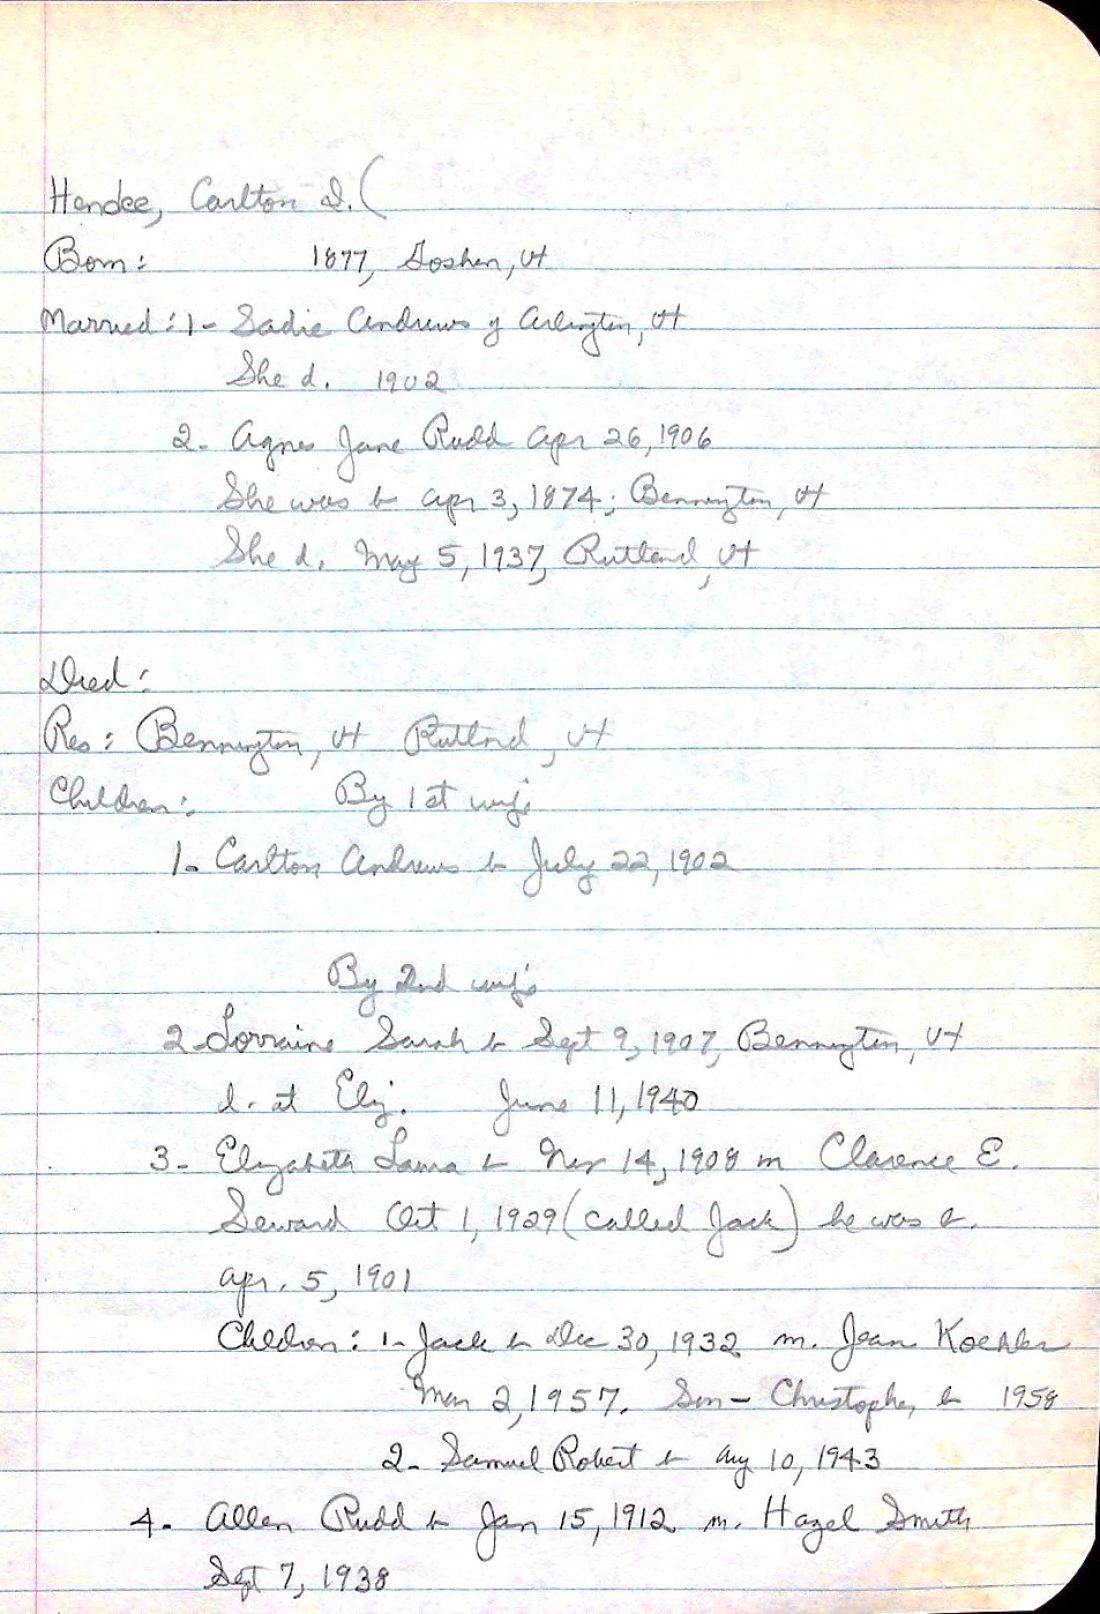 Hendee, Carlton D. (
Born: 1877, Goshen, Vt
Married: 1- Sadie Andrews of Arlington, Vt
She d. 1902
2- Agnes Jane Rudd Apr 26, 1906
She was b Apr 3, 1874; Bennington, Vt
She d. May 5, 1937, Rutland, Vt
Died:
Res: Bennington, Vt Rutland, Vt
Children: By 1st wife
1- Carlton Andrews b July 22, 1902
By 2nd wife
2- Lorraine Sarah b Sept 9, 1907, Bennington, Vt
d. at Eliz. June 11, 1940
3- Elizabeth Laura b Nov 14, 1908 m Clarence E.
Seward Oct 1, 1929 (called Jack) he was b.
Apr. 5, 1901
Children: 1- Jack b Dec 30, 1932 m. Jean Koehler
Mar 2, 1957. Son - Christopher, b 1958
2- Samuel Robert b Aug 10, 1943
4- Allen Rudd b Jan 15, 1912 m. Hazel Smith
Sept 7, 1938